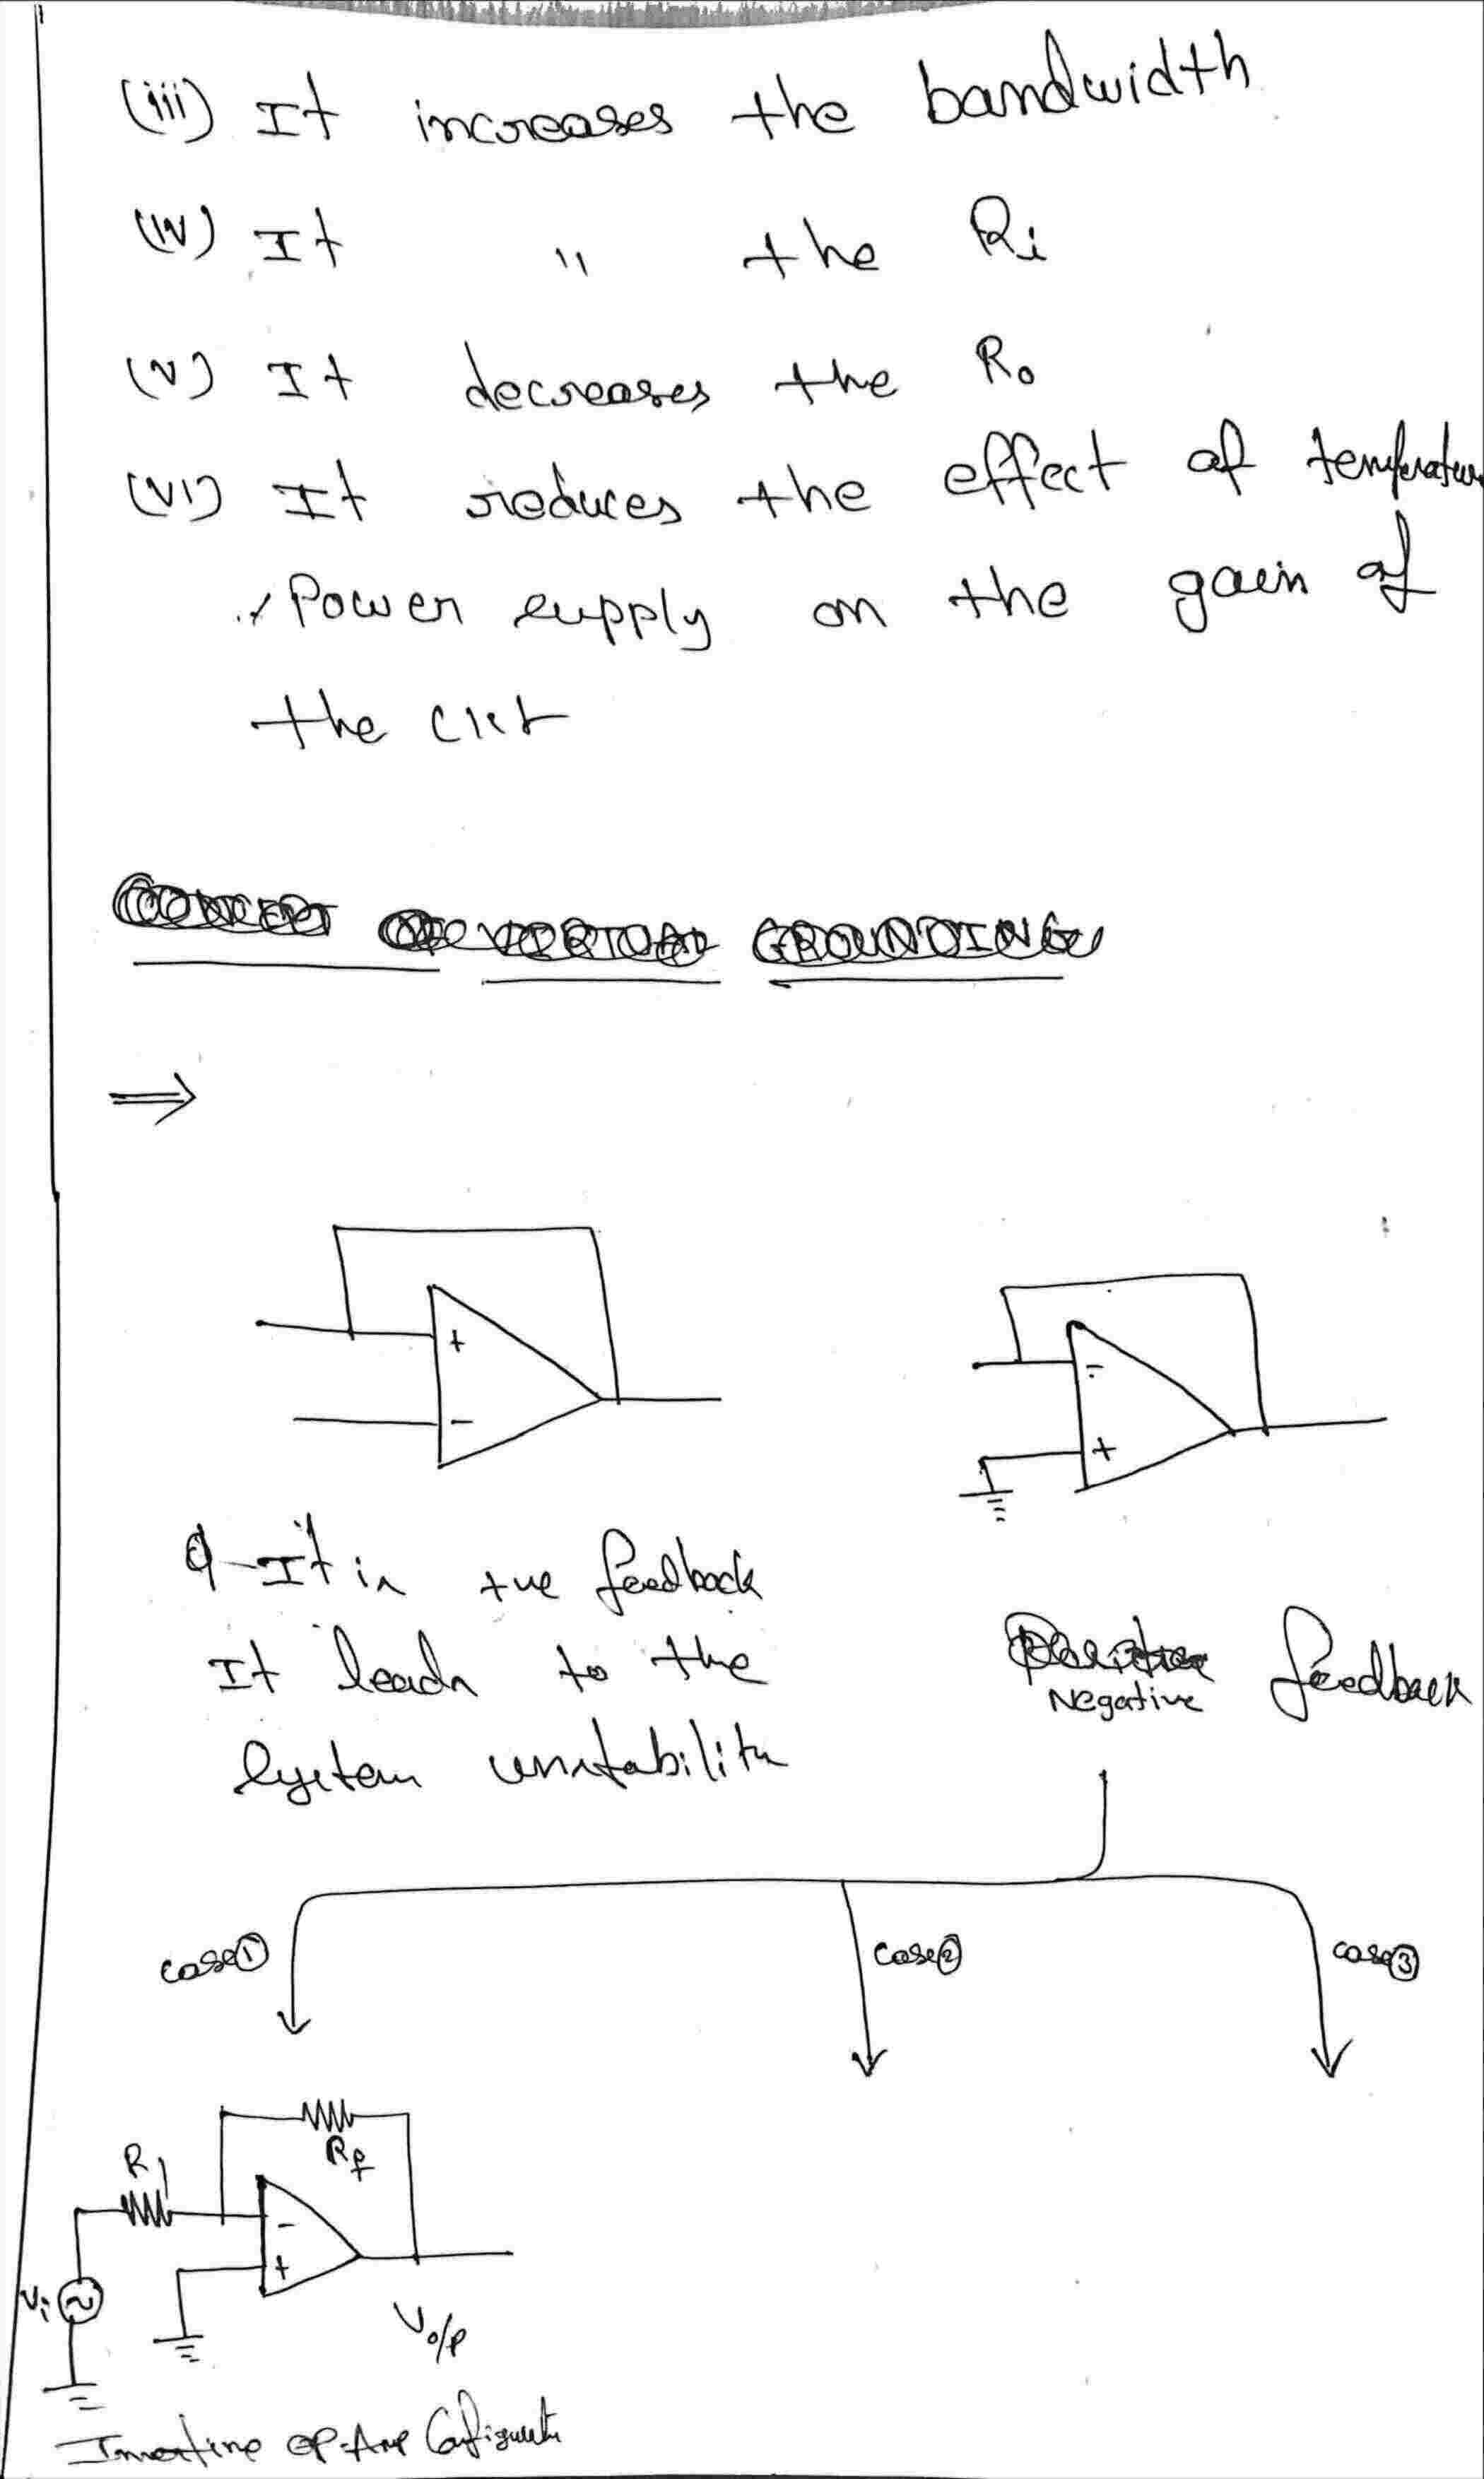 (iii) It increases the bandwidth
(iv) It " the Ri
(v) It decreases the Ro
(vi) It reduces the effect of temperature
, Power supply on the gain of
the ckt
CONCEPT OF VIRTUAL GROUNDING
⇒
+
-
-
+
It is +ve feedback
It leads to the
System unstability
Negative feedback
case ①
case ②
case ③
Rf
R1
-
+
Vi
Vo/p
Inverting OP-Amp Configurate